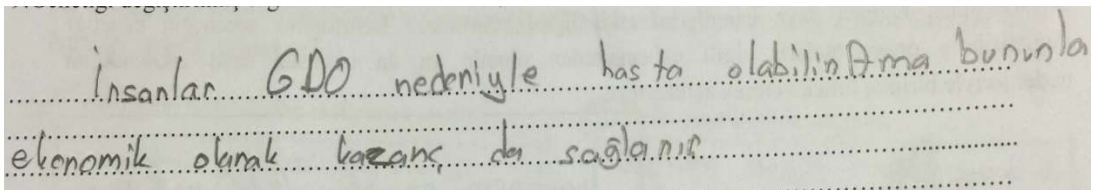 İnsanlar GDO nedeniyle hasta olabilir. Ama bununla
ekonomik olarak kazanç da sağlanır